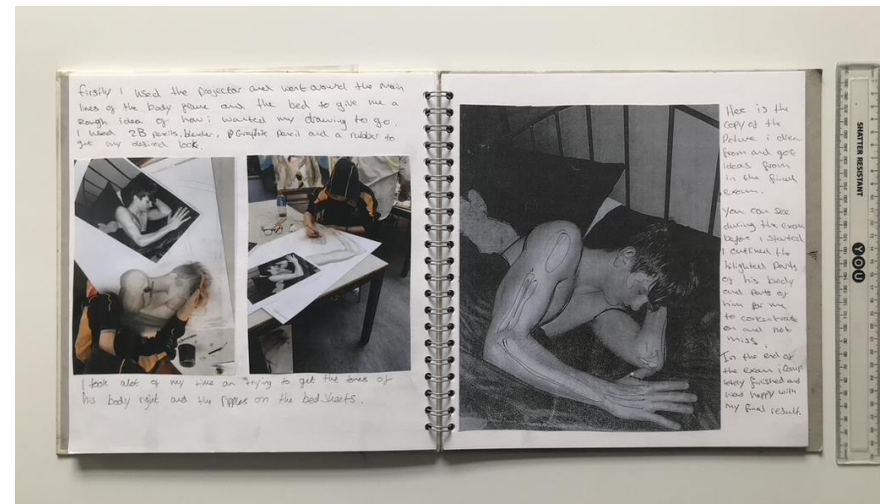 firstly I used the projector and went around the main
lines of the body frame and the bed to give me a
rough idea of how i wanted my drawing to go.
I used 2B pencils, blender, graphite pencil and a rubber to
get my desired look.
I took alot of my time on trying to get the tones of
his body right and the ripples on the bedsheets.
Here is the
copy of the
Picture i drew
from and got
ideas from
in the final
exam.
You can see
during the exam
before i started
I outlined the
highlighted parts
of his body
and parts of
him for me
to concentrate
on and not
miss.
In the end of
the exam i comp
letely finished and
was happy with
my final result.
SHATTER RESISTANT
YOU